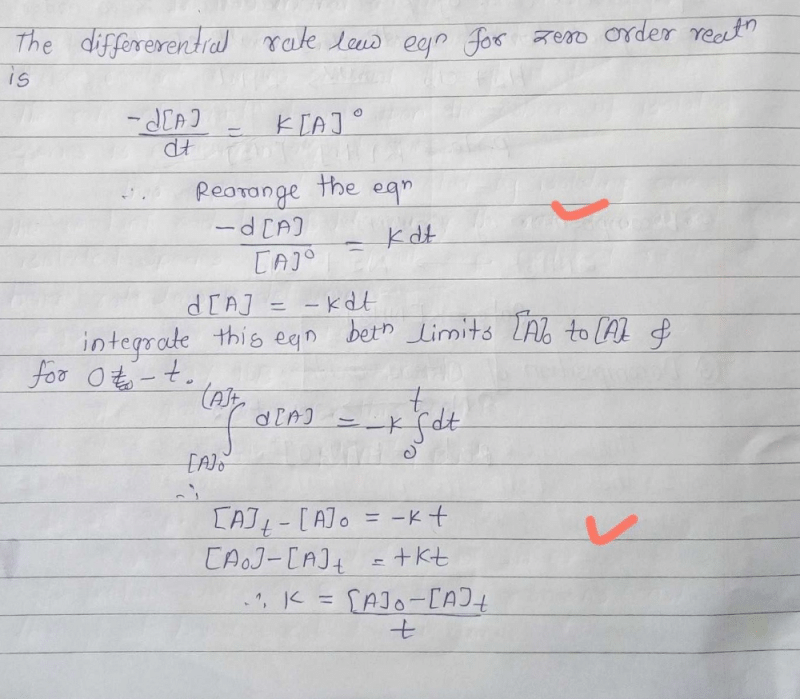 The differerential rate law eqn for zero order reatn
is
-d[A]/dt = K[A]°
∴ Rearange the eqn
-d[A]/[A]° = Kdt
d[A] = -Kdt
integrate this eqn betn limits [A]0 to [A]t &
for 0 to - t.
∫ [A]0 [A]t d[A] = -K ∫ 0 t dt
∴
[A]t - [A]0 = -Kt
[A0] - [A]t = +Kt
∴ K = [A]0 - [A]t / t